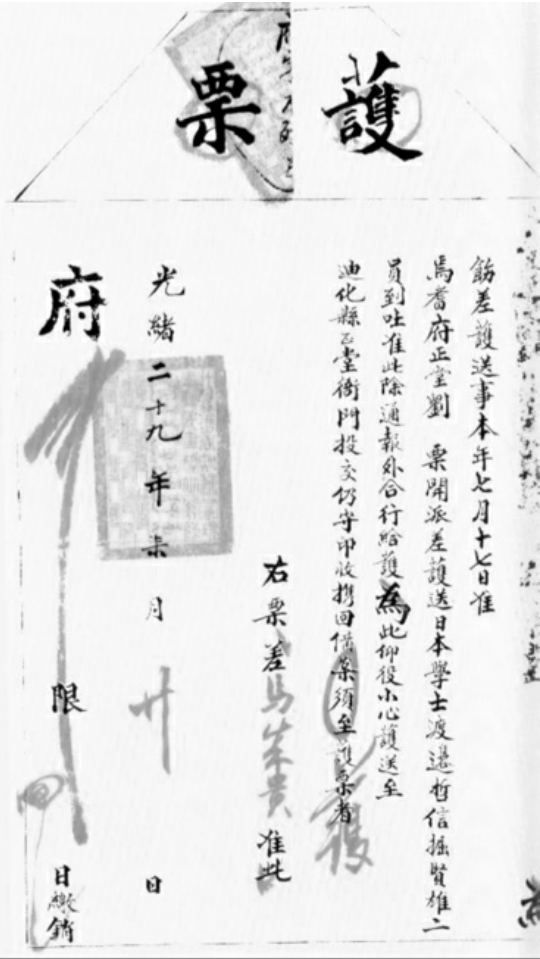 護票
飭差護送事本年七月十七日准
焉耆府正堂劉　票開派差護送日本學士渡邉哲信掘賢雄二
員到吐准此除通報外合行給護為此仰役小心護送至
迪化縣正堂衙門投交仍守印收擕回備案須至護票者
右票差馬生貴准此
光緒二十九年柒月廿日
府
限　日繳銷